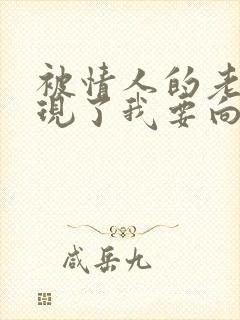 被情人的老
现了我要向
咸岳九